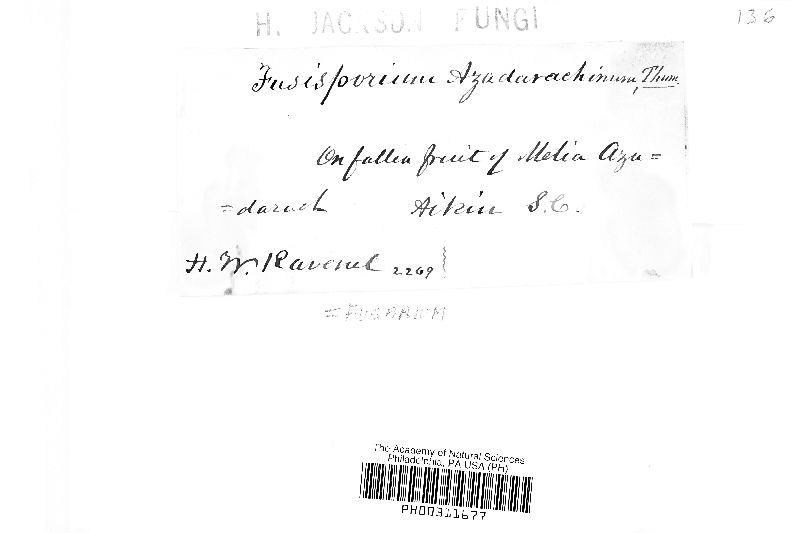 H. JACKSON FUNGI
136
Fusisporium Azadarachinum, Thum.
On fallen fruit of Melia Aza=
=darach Aikin S.C.
H. W. Ravenel 2269
=FUSARIUM
The Academy of Natural Sciences
Philadelphia, PA USA (PH)
PH00311677